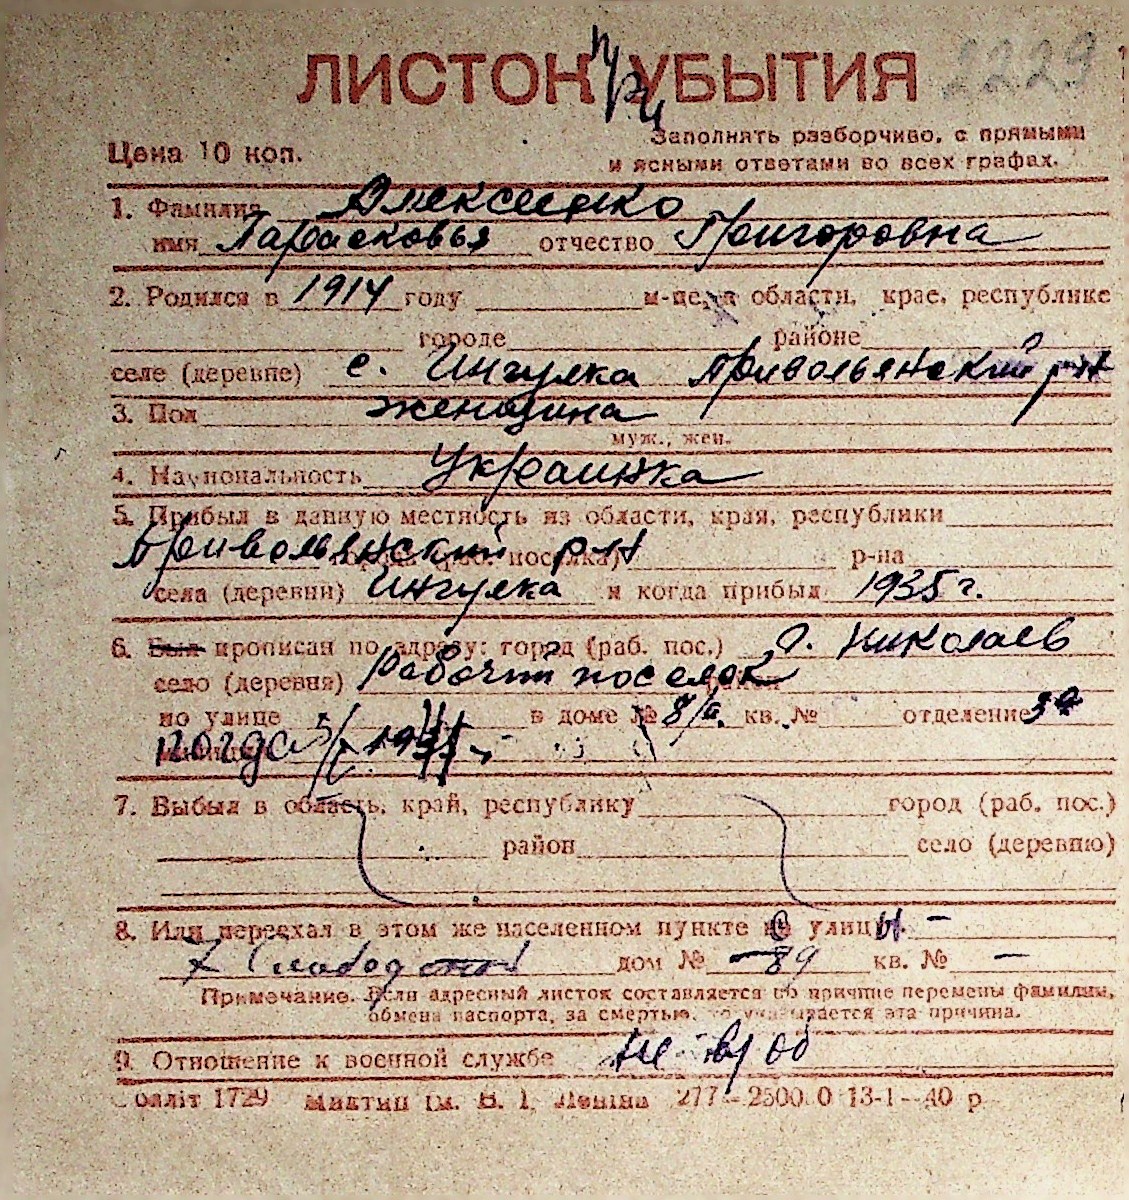 ЛИСТОК УБЫТИЯ 2229
Цена 10 коп.
Заполнять разборчиво, с прямыми
и ясными ответами во всех графах.
1. Фамилия Алексеенко
имя Парасковья отчество Григоровна
2. Родился в 1914 году м-це, в области, крае, республике
городе районе
селе (деревне) с. Ингулка Привольянский р-н
3. Пол женщина
муж., жен.
4. Национальность Украинка
5. Прибыл в данную местность из области, края, республики
Привольянский р-н р-на
села (деревни) Ингулка и когда прибыл 1935 г.
6. Был прописан по адресу: город (раб. пос.) г. Николаев
село (деревня) Рабочий поселок
по улице в доме № 8/а. кв. № отделение
7. Выбыл в область, край, республику город (раб. пос.)
район село (деревню)
8. Или переехал в этом же населенном пункте улицы -
7 Слободская дом № 89 кв. № -
Примечание. Если адресный листок составляется по причине перемены фамилии,
обмена паспорта, за смертью, то указывается эта причина.
9. Отношение к военной службе не в/об
Облліт 1729 Миктип ім. В. І. Леніна 277-2500.0 13-1-40 р